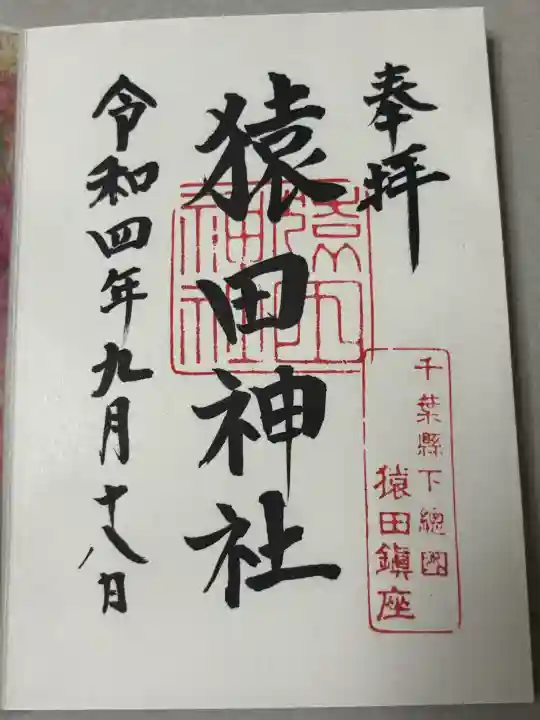 奉拝
千葉縣下總國
猿田鎭座
猿田神社
猿田
神社
令和四年九月十八日